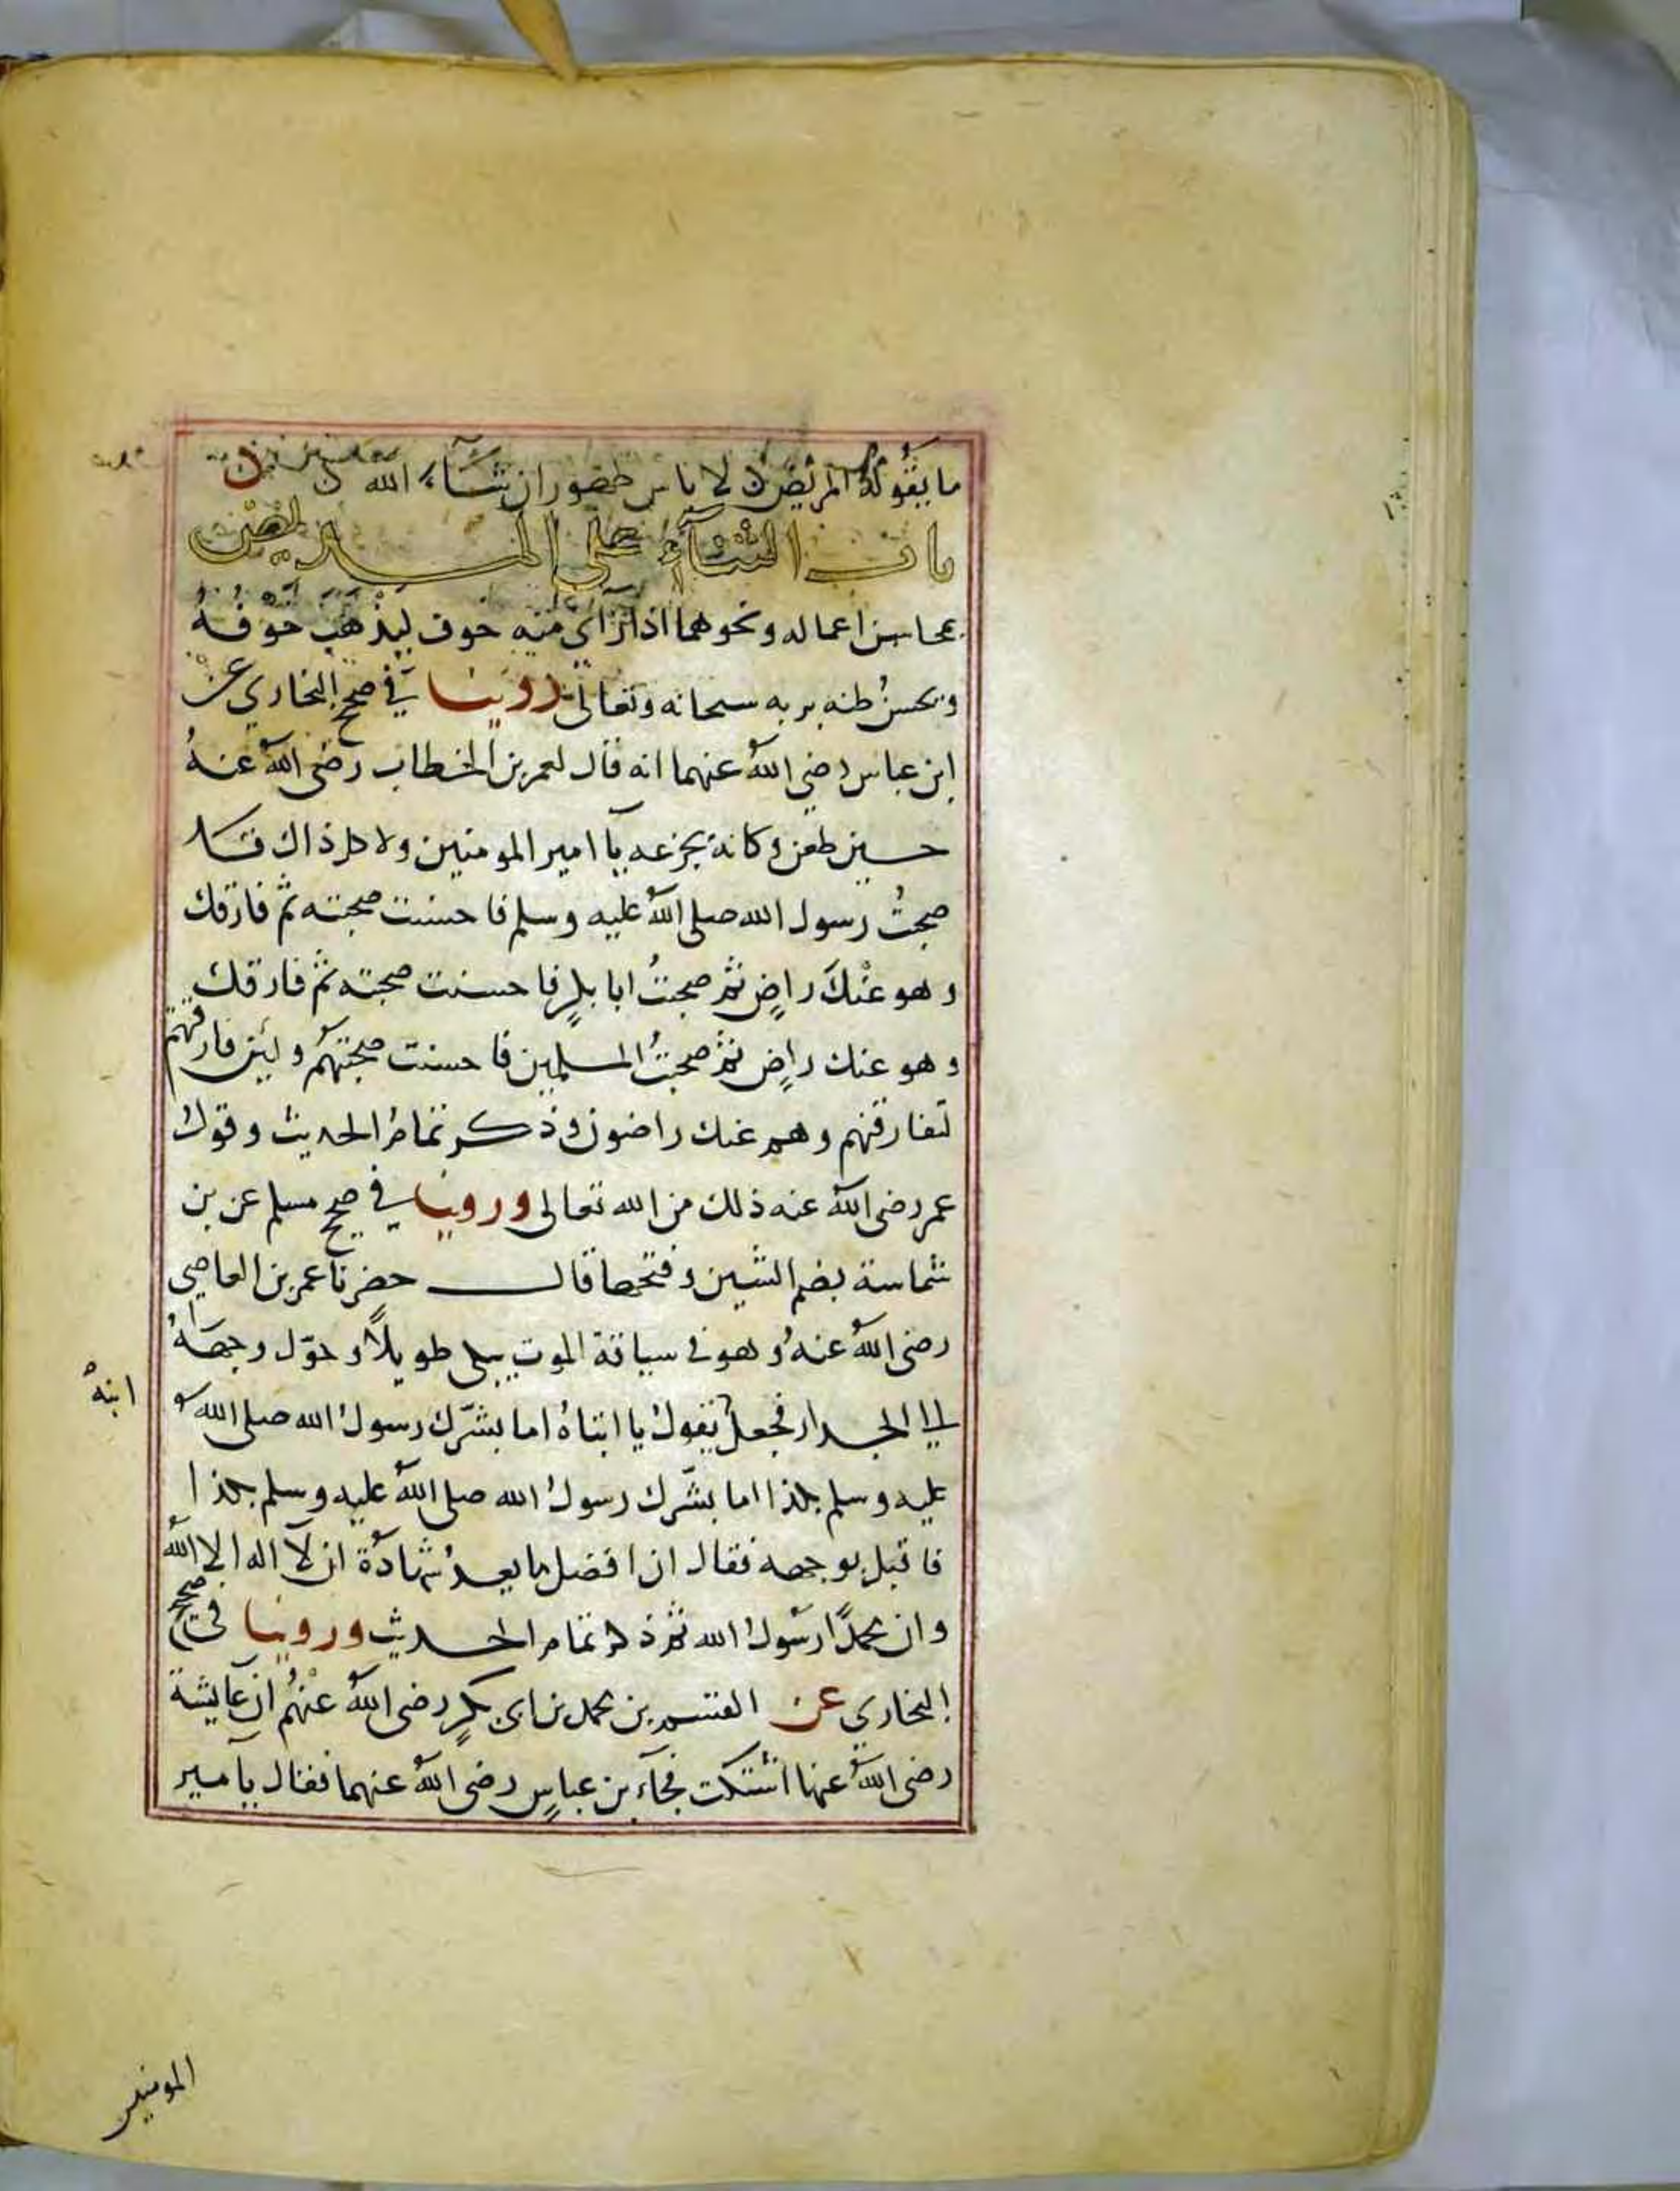 ما يقوله المريض لا باس طهور ان شاء الله
باب الثناء على المريض
بمحاسن اعماله ونحوهما اذا رأى منه خوف ليذهب خوفه
ويحسن ظنه بربه سبحانه وتعالى روينا في صحيح البخاري عن
ابن عباس رضي الله عنهما انه قال لعمر بن الخطاب رضى الله عنهُ
حين طعن وكانه يجزعه يآ امير المومنين ولا كل ذاك قد
صحبتُ رسول الله صلى الله عليه وسلم فاحسنت صحبته ثم فارقك
وهو عنْكَ راضٍ ثم صحبتُ ابا بكرٍ فاحسنت صحبته ثم فارقك
وهو عنك راضٍ ثم صحبتُ المسلمين فاحسنت صحبتهم ولئن فارقتهم
لتفارقنهم وهم عنك راضون وذكر تمام الحديث وقول
عمر رضى الله عنه ذلك من الله تعالى وروينا في صحيح مسلم عن بن
شماسة بضم الشين وفتحها قال حضرنا عمر بن العاصى
رضى الله عنهُ وهو في سياقة الموت يبكى طويلاً وحوّل وجههُ
الى الجدار فجعل يقول يا ابتاهُ اما بشّرك رسول الله صلى الله
ابنهُ
عليه وسلم بكذا اما بشّرك رسولُ الله صلى الله عليه وسلم بكذا
فاقبل بوجهه فقال ان افضل ما يعدُ شهادة ان لآ اله الا الله
وان محمدًا رسولُ الله ثم ذكر تمام الحديث وروينا في صحيح
البخاري عن القسم بن محمد بن ابى بكرٍ رضى الله عنْهُم ان عايشة
رضى الله عنها اشتكت فجآء بن عباسٍ رضى الله عنهما فقال يآ مير
المومنين